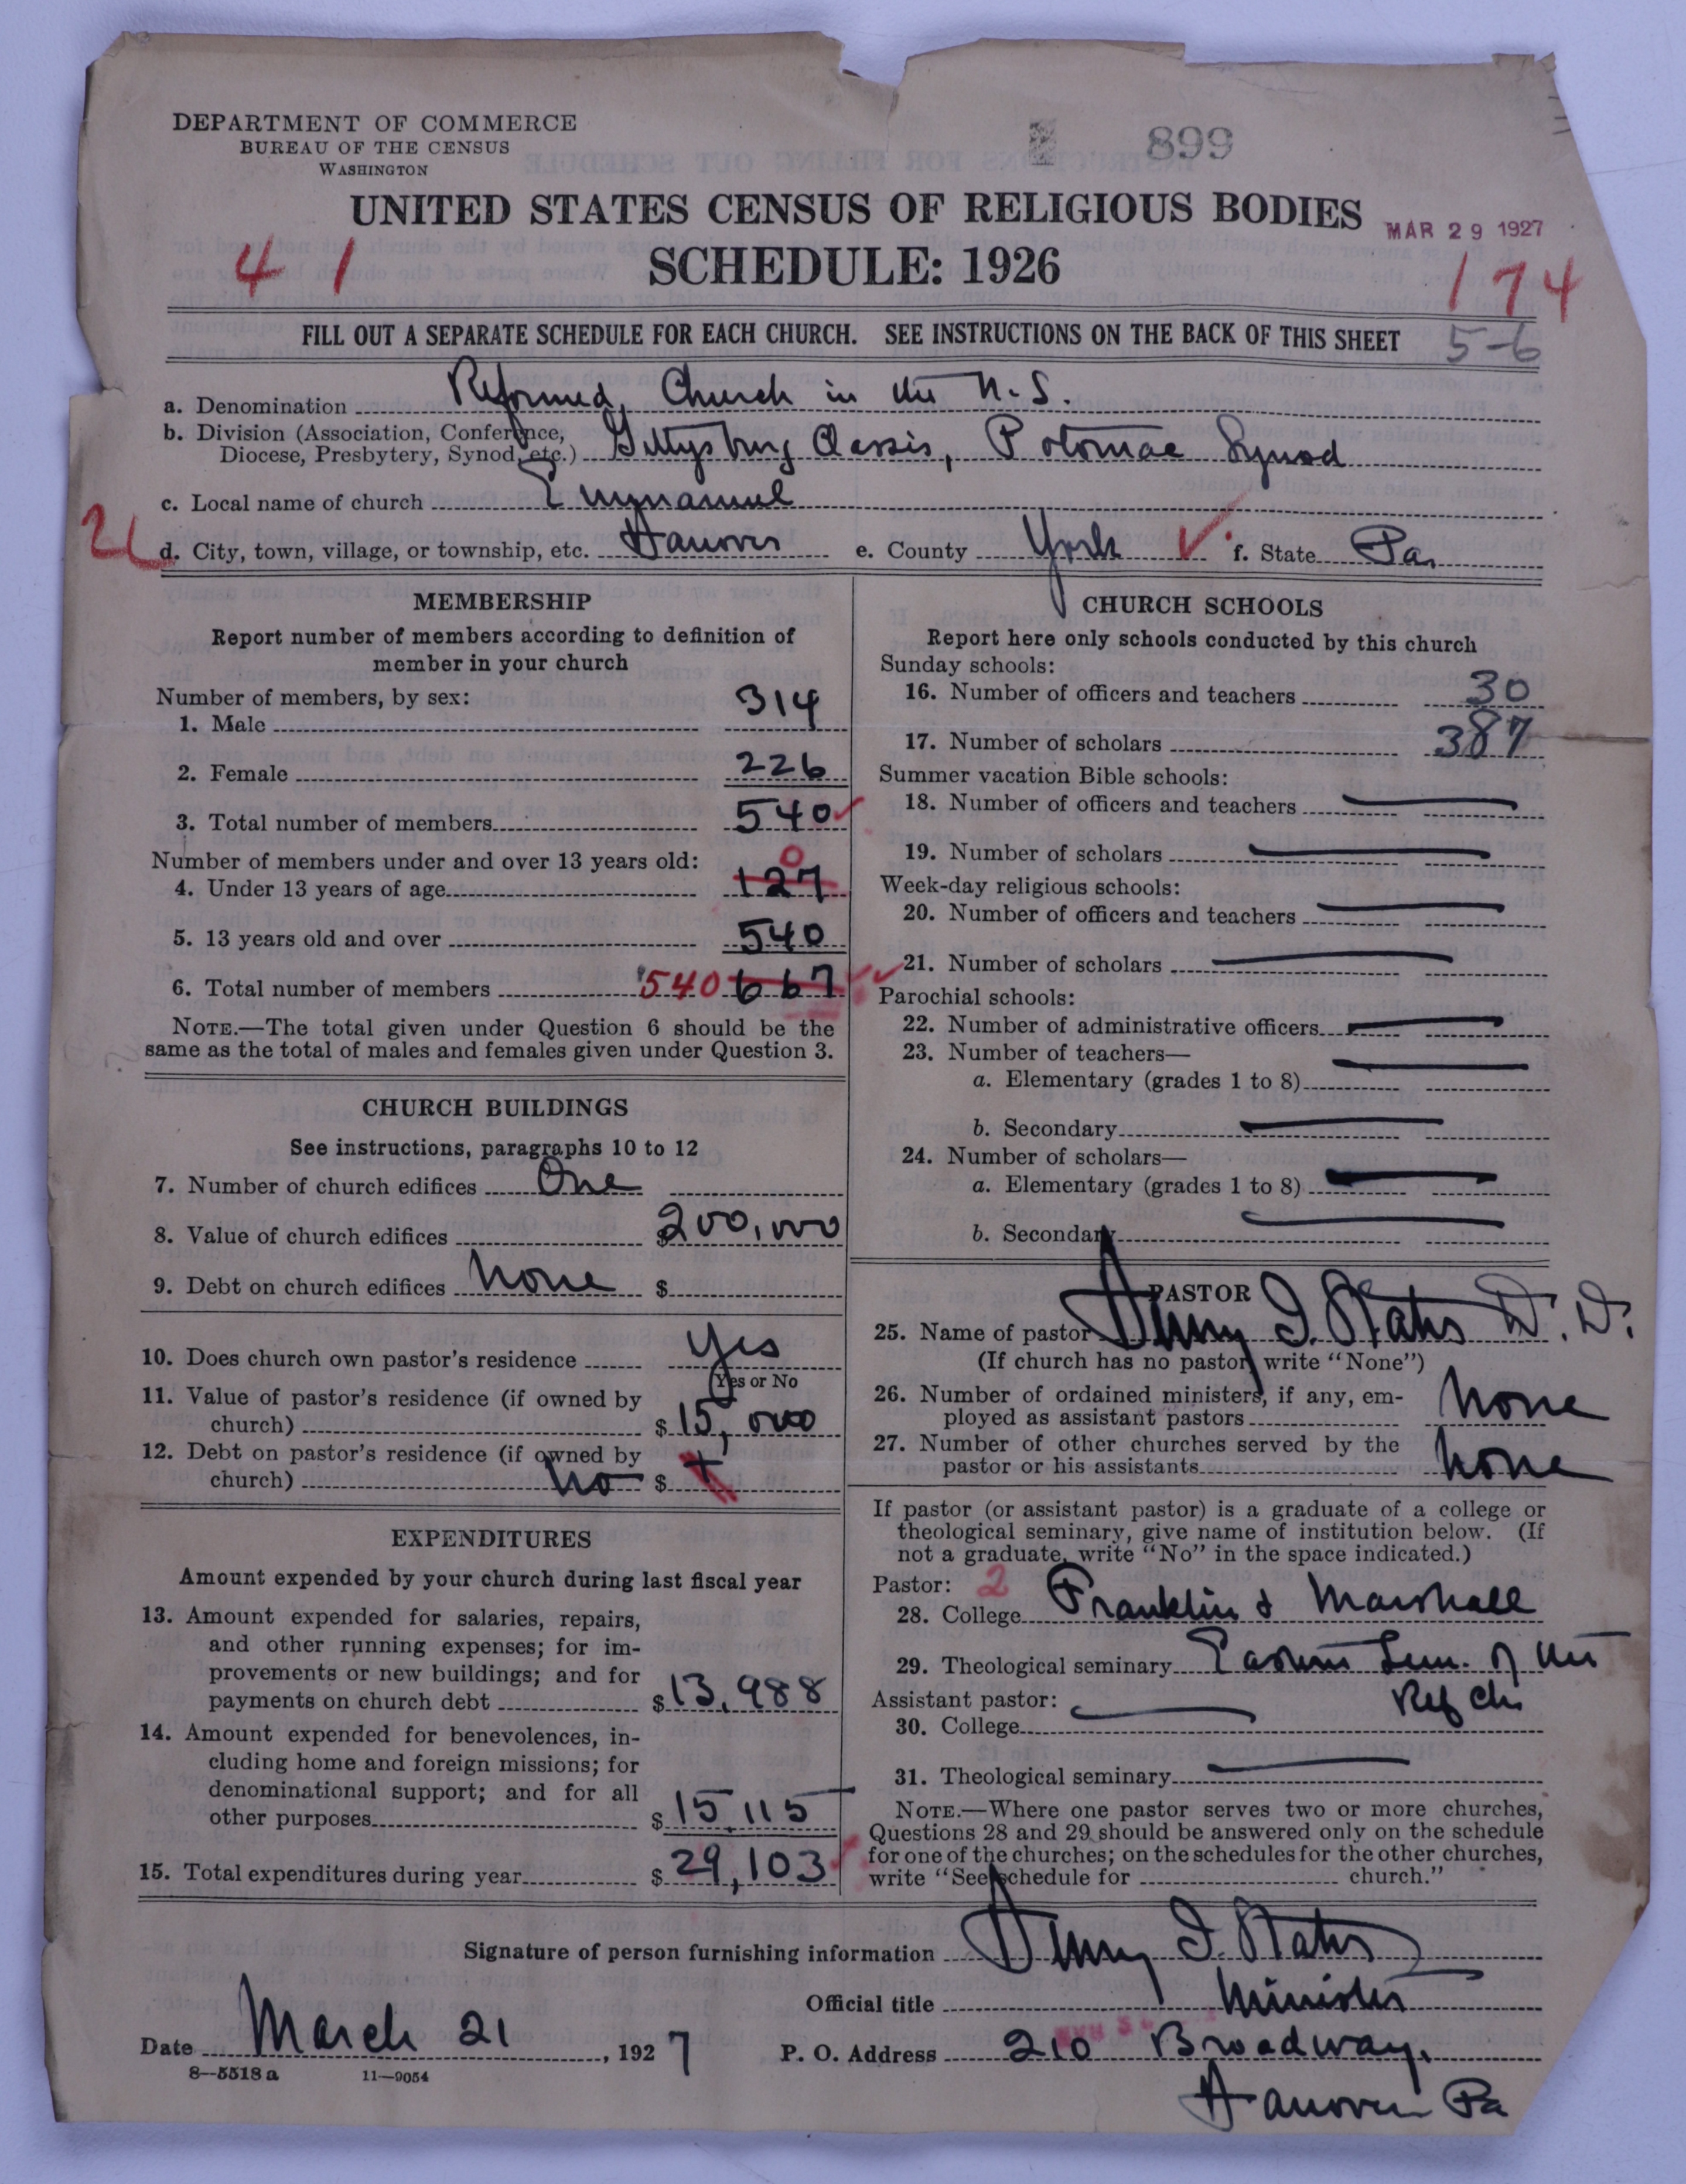 DEPARTMENT OF COMMERCE
BUREAU OF THE CENSUS
WASHINGTON
899
UNITED STATES CENSUS OF RELIGIOUS BODIES
MAR 29 1927
SCHEDULE: 1926
41
174
FILL OUT A SEPARATE SCHEDULE FOR EACH CHURCH. SEE INSTRUCTIONS ON THE BACK OF THIS SHEET
5-6
a. Denomination Reformed Church in the U.S.
b. Division (Association, Conference,
Diocese, Presbytery, Synod, etc.) Gettysburg Classis, Potomac Synod
c. Local name of church Emmanuel
d. City, town, village, or township, etc. Hanover e. County York f. State Pa.
MEMBERSHIP
Report number of members according to definition of
member in your church
Number of members, by sex:
1. Male 314
2. Female 226
3. Total number of members 540
Number of members under and over 13 years old:
0
4. Under 13 years of age 127
5. 13 years old and over 540
6. Total number of members 540 667
NOTE.—The total given under Question 6 should be the
same as the total of males and females given under Question 3.
CHURCH BUILDINGS
See instructions, paragraphs 10 to 12
7. Number of church edifices One
8. Value of church edifices $200,000
9. Debt on church edifices None $
10. Does church own pastor's residence Yes
Yes or No
11. Value of pastor's residence (if owned by
church) $15,000
12. Debt on pastor's residence (if owned by
church) No $
EXPENDITURES
Amount expended by your church during last fiscal year
13. Amount expended for salaries, repairs,
and other running expenses; for im-
provements or new buildings; and for
payments on church debt $13,988
14. Amount expended for benevolences, in-
cluding home and foreign missions; for
denominational support; and for all
other purposes $15,115
15. Total expenditures during year $29,103
CHURCH SCHOOLS
Report here only schools conducted by this church
Sunday schools:
16. Number of officers and teachers 30
17. Number of scholars 387
Summer vacation Bible schools:
18. Number of officers and teachers
19. Number of scholars
Week-day religious schools:
20. Number of officers and teachers
21. Number of scholars
Parochial schools:
22. Number of administrative officers
23. Number of teachers—
a. Elementary (grades 1 to 8)
b. Secondary
24. Number of scholars—
a. Elementary (grades 1 to 8)
b. Secondary
PASTOR
25. Name of pastor Henry I. Stahr D.D.
(If church has no pastor, write "None")
26. Number of ordained ministers, if any, em-
ployed as assistant pastors None
27. Number of other churches served by the
pastor or his assistants None
If pastor (or assistant pastor) is a graduate of a college or
theological seminary, give name of institution below. (If
not a graduate, write "No" in the space indicated.)
Pastor: 2
28. College Franklin & Marshall
29. Theological seminary Eastern Sem. of the
Ref Ch
Assistant pastor:
30. College
31. Theological seminary
NOTE.—Where one pastor serves two or more churches,
Questions 28 and 29 should be answered only on the schedule
for one of the churches; on the schedules for the other churches,
write "See schedule for church."
Signature of person furnishing information Henry I. Stahr
Official title Minister
Date March 21, 1927 P. O. Address 210 Broadway,
Hanover Pa
8—5518a 11—9054